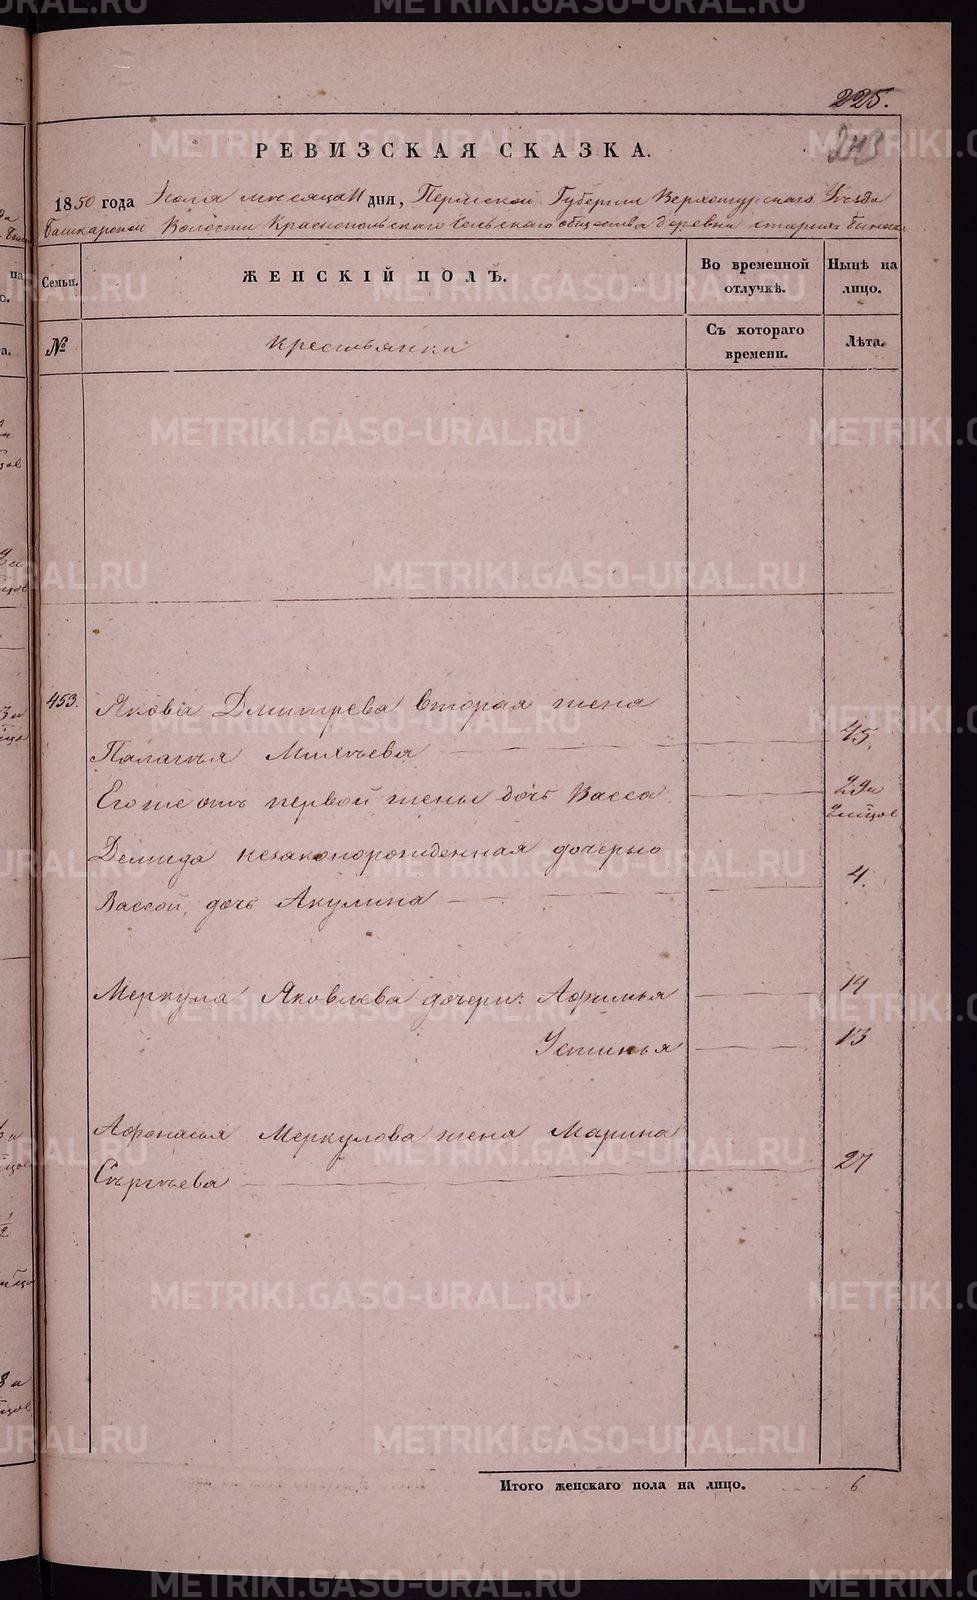 225.
243
РЕВИЗСКАЯ СКАЗКА.
1850 года Июля месяца 11 дня, Пермской Губернии Верхотурскаго Уезда
Башкарской Волости Краснопольскаго Сельскаго общества деревни старых
Семьи.
ЖЕНСКІЙ ПОЛЪ.
Во временной отлучкѣ.
Нынѣ на лицо.
№
Крестьянки
Съ котораго времени.
Лѣта.
453.
Якова Дмитрева вторая жена
Палагѣя Михѣева
45.
Его же отъ первой жены дочь Васса
29 и
2 мѣсяц
Демида незаконорожденная дочерью
Вассой, дочь Акулина
4.
Меркула Яковлева дочери: Афимья
14
Устинья
13
Афонасья Меркулова жена Марина
Сѣргѣева
27
Итого женскаго пола на лицо.
6
METRIKI.GASO-URAL.RU